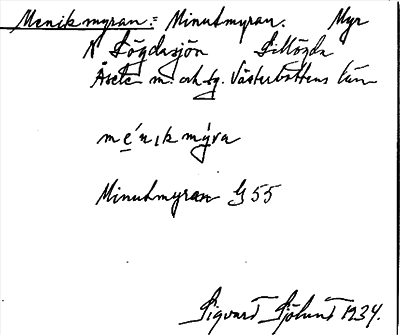 Menikmyran: = Minutmyran. Myr
N Lögdasjön Lillögda
Åsele m. o. h. sg. Västerbottens län
mé̱nıkmýra
Minutmyran G 55
Sigvard Sjölund 1934.